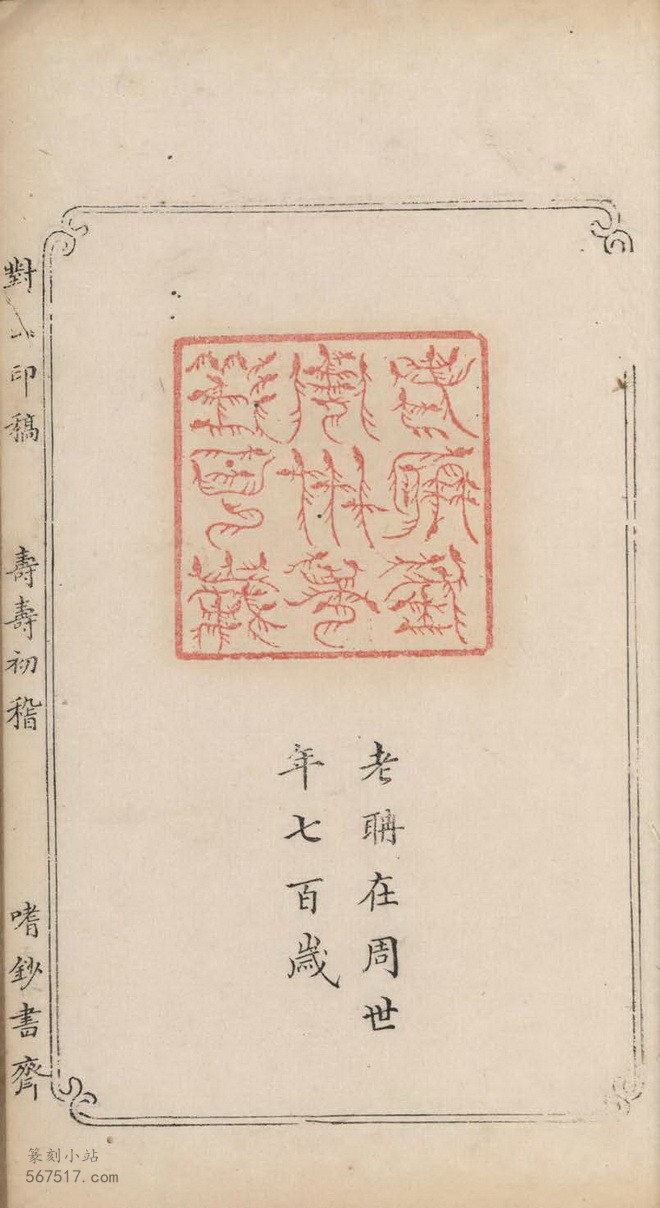 老聃在周世
年七百歲
對 印稿
壽壽初稽
嗜鈔書齋
篆刻小站
567517.com